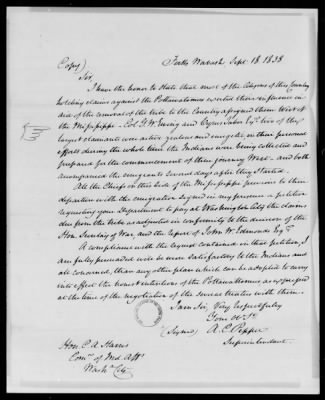 Forks Wabash Sept. 18. 1838
(Copy)
Sir,
I have the honor to State that most of the Citizens of this Country
holding claims against the Pottawatomies exerted their influence in
aid of the removal of the tribe to the Country assigned them West of
the Mississippi - Col. G. W. Ewing and Cyrus Esqr. two of the
largest claimants were active zealous and energetic in their personal
efforts during the whole time the Indians were being collected and
prepared for the commencement of their journey West - and both
accompanied the emigrants several days after they started.
All the Chiefs on this side of the Mississippi previous to their
departure with the emigration signed in my presence a petition
requesting your Department to pay at Washington City the claims
due from the tribe as adjusted in conformity to the decision of the
Hon. Secretary of War, and the report of John W. Edmonds Esqr.
A compliance with the request contained in that petition, I
am fully persuaded will be more Satisfactory to the Indians and
all concerned, than any other plan which can be adopted to carry
into effect the honest intentions of the Pottawattomies as expressed
at the time of the negotiation of the several treaties with them.
I am Sir, Very Respectfully
Your Obt. St.
(Signed) A. C. Pepper
Superintendent.
Hon. C. A. Harris
Comr. of Ind. Affs.
Washn. City